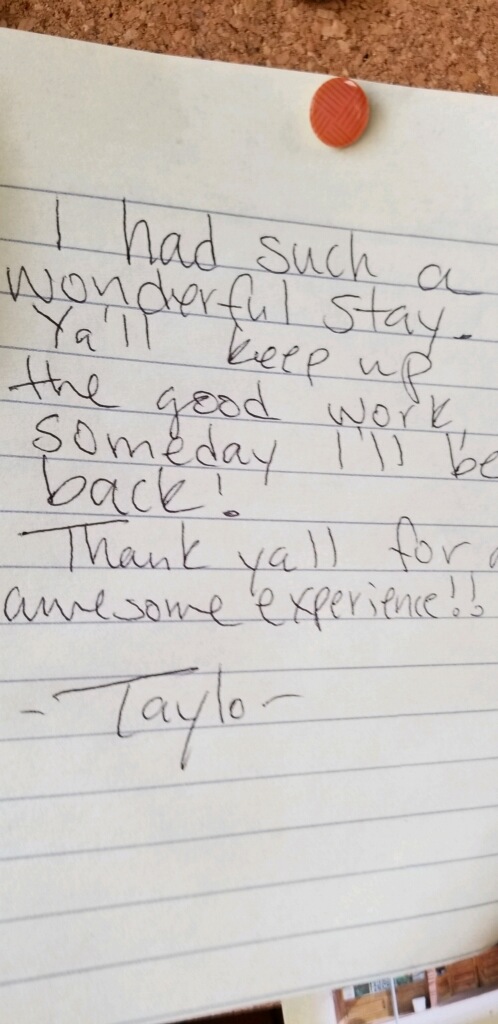 I had such a
wonderful stay.
Ya'll keep up
the good work,
someday I'll be
back!
Thank ya'll for a
awesome experience!!
- Taylor